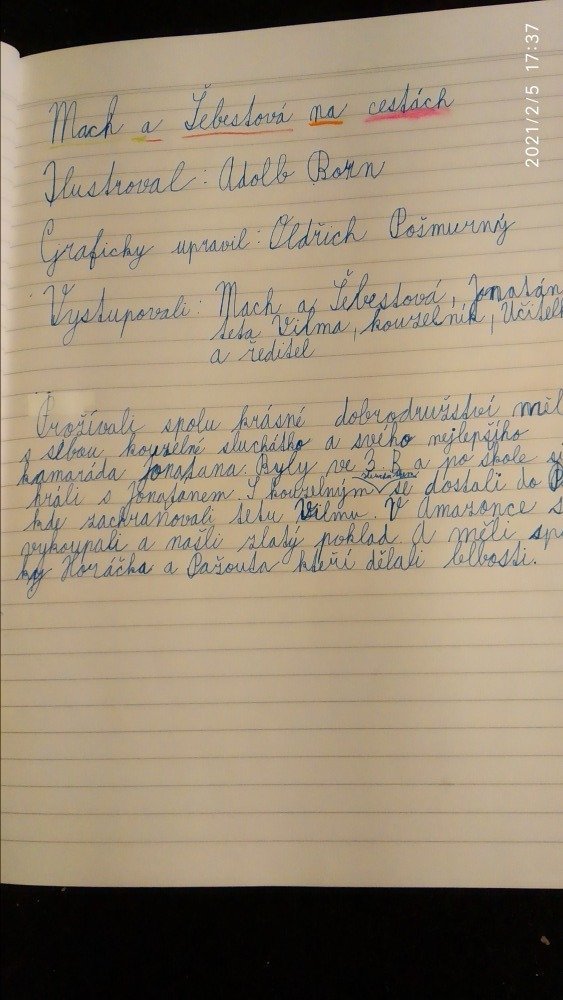 Mach a Šebestová na cestách
Ilustroval: Adolb Born
Graficky upravil: Oldřich Pošmurný
Vystupovali: Mach a Šebestová, Jonatán
teta Vilma, kouzelník, Učitelk
a ředitel
Prožívali spolu krásné dobrodružství měl
s sebou kouzelné sluchátko a svého nejlepšího
kamaráda Jonatana. Byly ve 3. B a po škole si
hráli s Jonatanem. S kouzelným se dostali do
kde zachraňovali tetu Vilmu. V Amazonce s
vykoupali a našli zlatý poklad. A měli spo
ky Horáčka a Pažouta kteří dělali blbosti.
2021/2/5 17:37